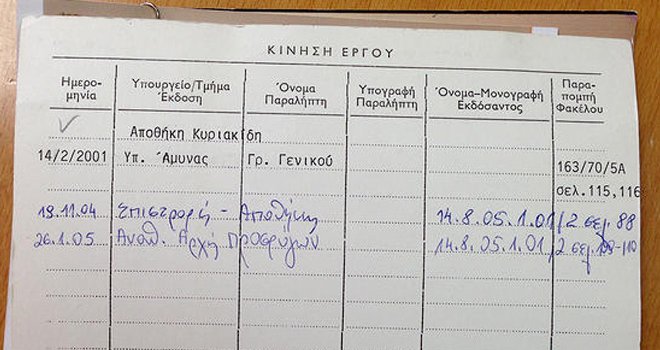 ΚΙΝΗΣΗ ΕΡΓΟΥ
Ημερο-μηνία Υπουργείο/Τμήμα Έκδοση Όνομα Παραλήπτη Υπογραφή Παραλήπτη Όνομα–Μονογραφή Εκδόσαντος Παρα-πομπή Φακέλου
Αποθήκη Κυριακίδη
14/2/2001 Υπ. Άμυνας Γρ. Γενικού 163/70/5Α
σελ.115,116
19.11.04 Επιστροφή - Αποθήκη 14.8.05.1.01/2 σελ. 88
26.1.05 Αναπ. Αρχή Προσφύγων 14.8.05.1.01/2 σελ. 109-110